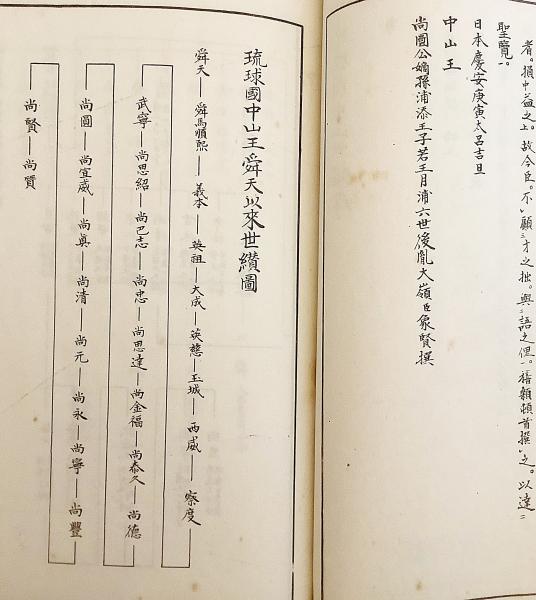 者。損中益之上。故今臣。不顧才之拙。與語之俚。稽顙頓首撰之。以達
聖覽。
日本慶安庚寅太呂吉旦
中山王
尚圓公嫡孫浦添王子若王月浦六世後胤大嶺臣象賢撰
琉球國中山王舜天以來世纘圖
舜天—舜馬順熙—義本—英祖—大成—英慈—玉城—西威—察度
武寧—尚思紹—尚巴志—尚忠—尚思達—尚金福—尚泰久—尚德
尚圓—尚宣威—尚真—尚清—尚元—尚永—尚寧—尚豐
尚賢—尚質